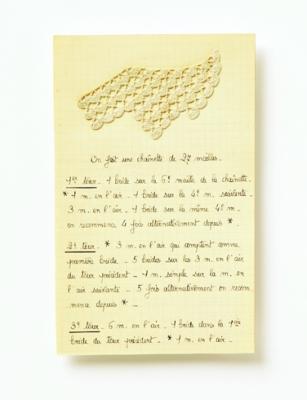 On fait une chaînette de 27 mailles.
1er tour. 1 bride sur la 6e maille de la chaînette
* 1 m. en l'air. 1 bride sur la 4e m. suivante.
3 m. en l'air. 1 bride sur la même 4e m.
on recommence 4 fois alternativement depuis *
2e tour. * 3 m. en l'air qui comptent comme
première bride. 5 brides sur les 3 m. en l'air
du tour précédent. 1 m. simple sur la m. en
l'air suivante. 5 fois alternativement on recom
mence depuis *.
3e tour. 6 m. en l'air. 1 bride dans la 1ère
bride du tour précédent. * 1 m. en l'air.